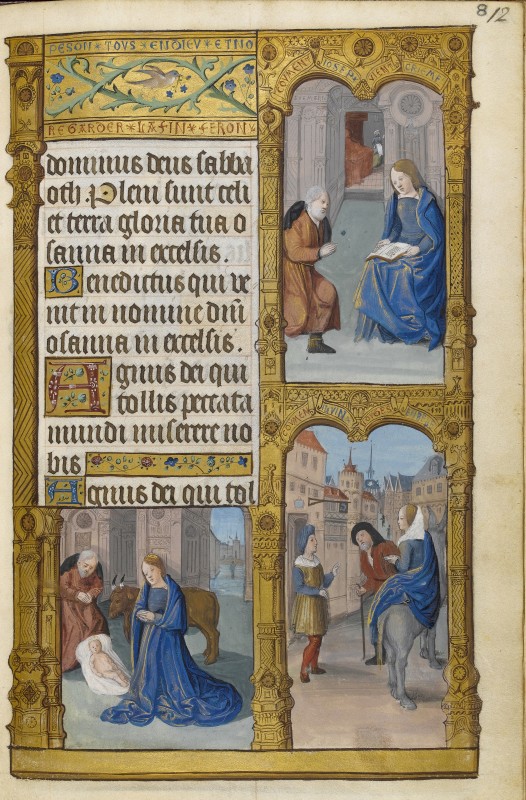 8/2
PESON * TOVS * ENDIEV * ET NO
REGARDER * LA FIN * FERON
dominus deus sabba
oth. Pleni sunt celi
et terra gloria tua o
sanna in excelsis.
Benedictus qui ve
nit in nomine dnī
osanna in excelsis.
Agnus dei qui
tollis peccata
mundi miserere no
bis
Agnus dei qui tol
IOSEPH